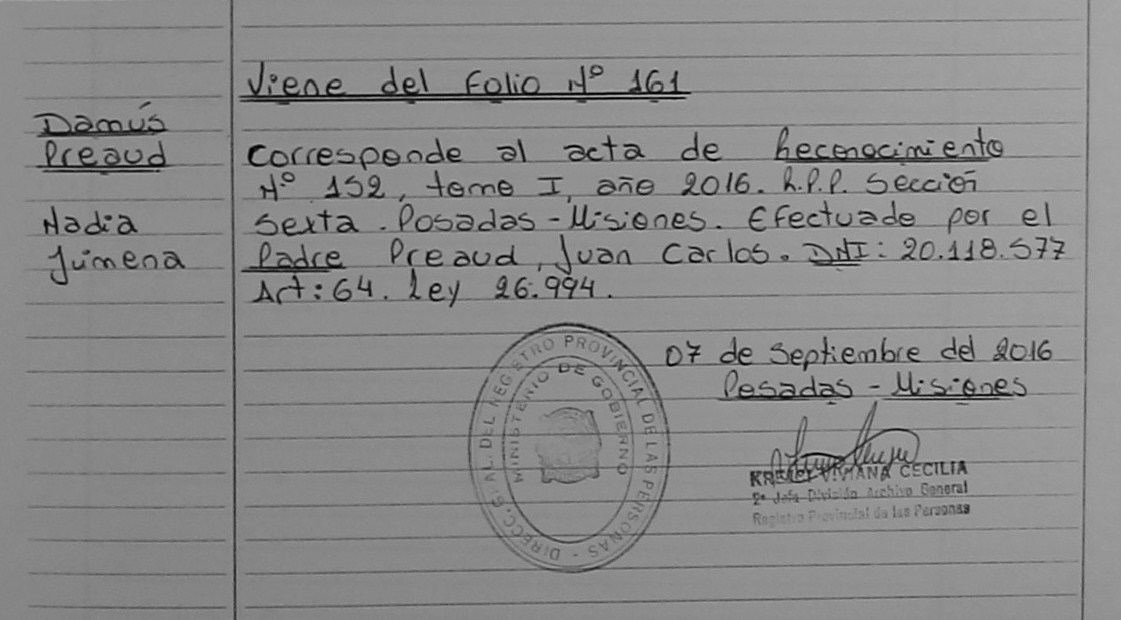 Viene del Folio Nº 161
Damús
Preaud
Nadia
Jimena
Corresponde al acta de Reconocimiento
Nº 152, tomo I, año 2016. R.P.P. Sección
Sexta. Posadas - Misiones. Efectuado por el
Padre Preaud, Juan Carlos. DNI: 20.118.577
Art: 64. Ley 26.994.
07 de Septiembre del 2016
Posadas - Misiones
DIRECC. GRAL. DEL REGISTRO PROVINCIAL DE LAS PERSONAS
MINISTERIO DE GOBIERNO
VIVIANA CECILIA
2ª Jefa División Archivo General
Registro Provincial de las Personas